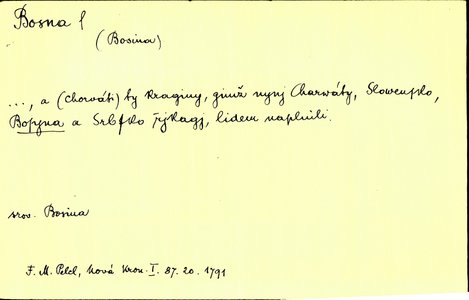 Bosna f
(Bosina)
..., a (chorváti) ty kraginy, gimž nynj Charwáty, Slowensko,
Bosyna a Srbsko řjkagj, lidem naplnili.
srov. Bosina
F. M. Pelcl, Nová Kron. I. 87. 20. 1791